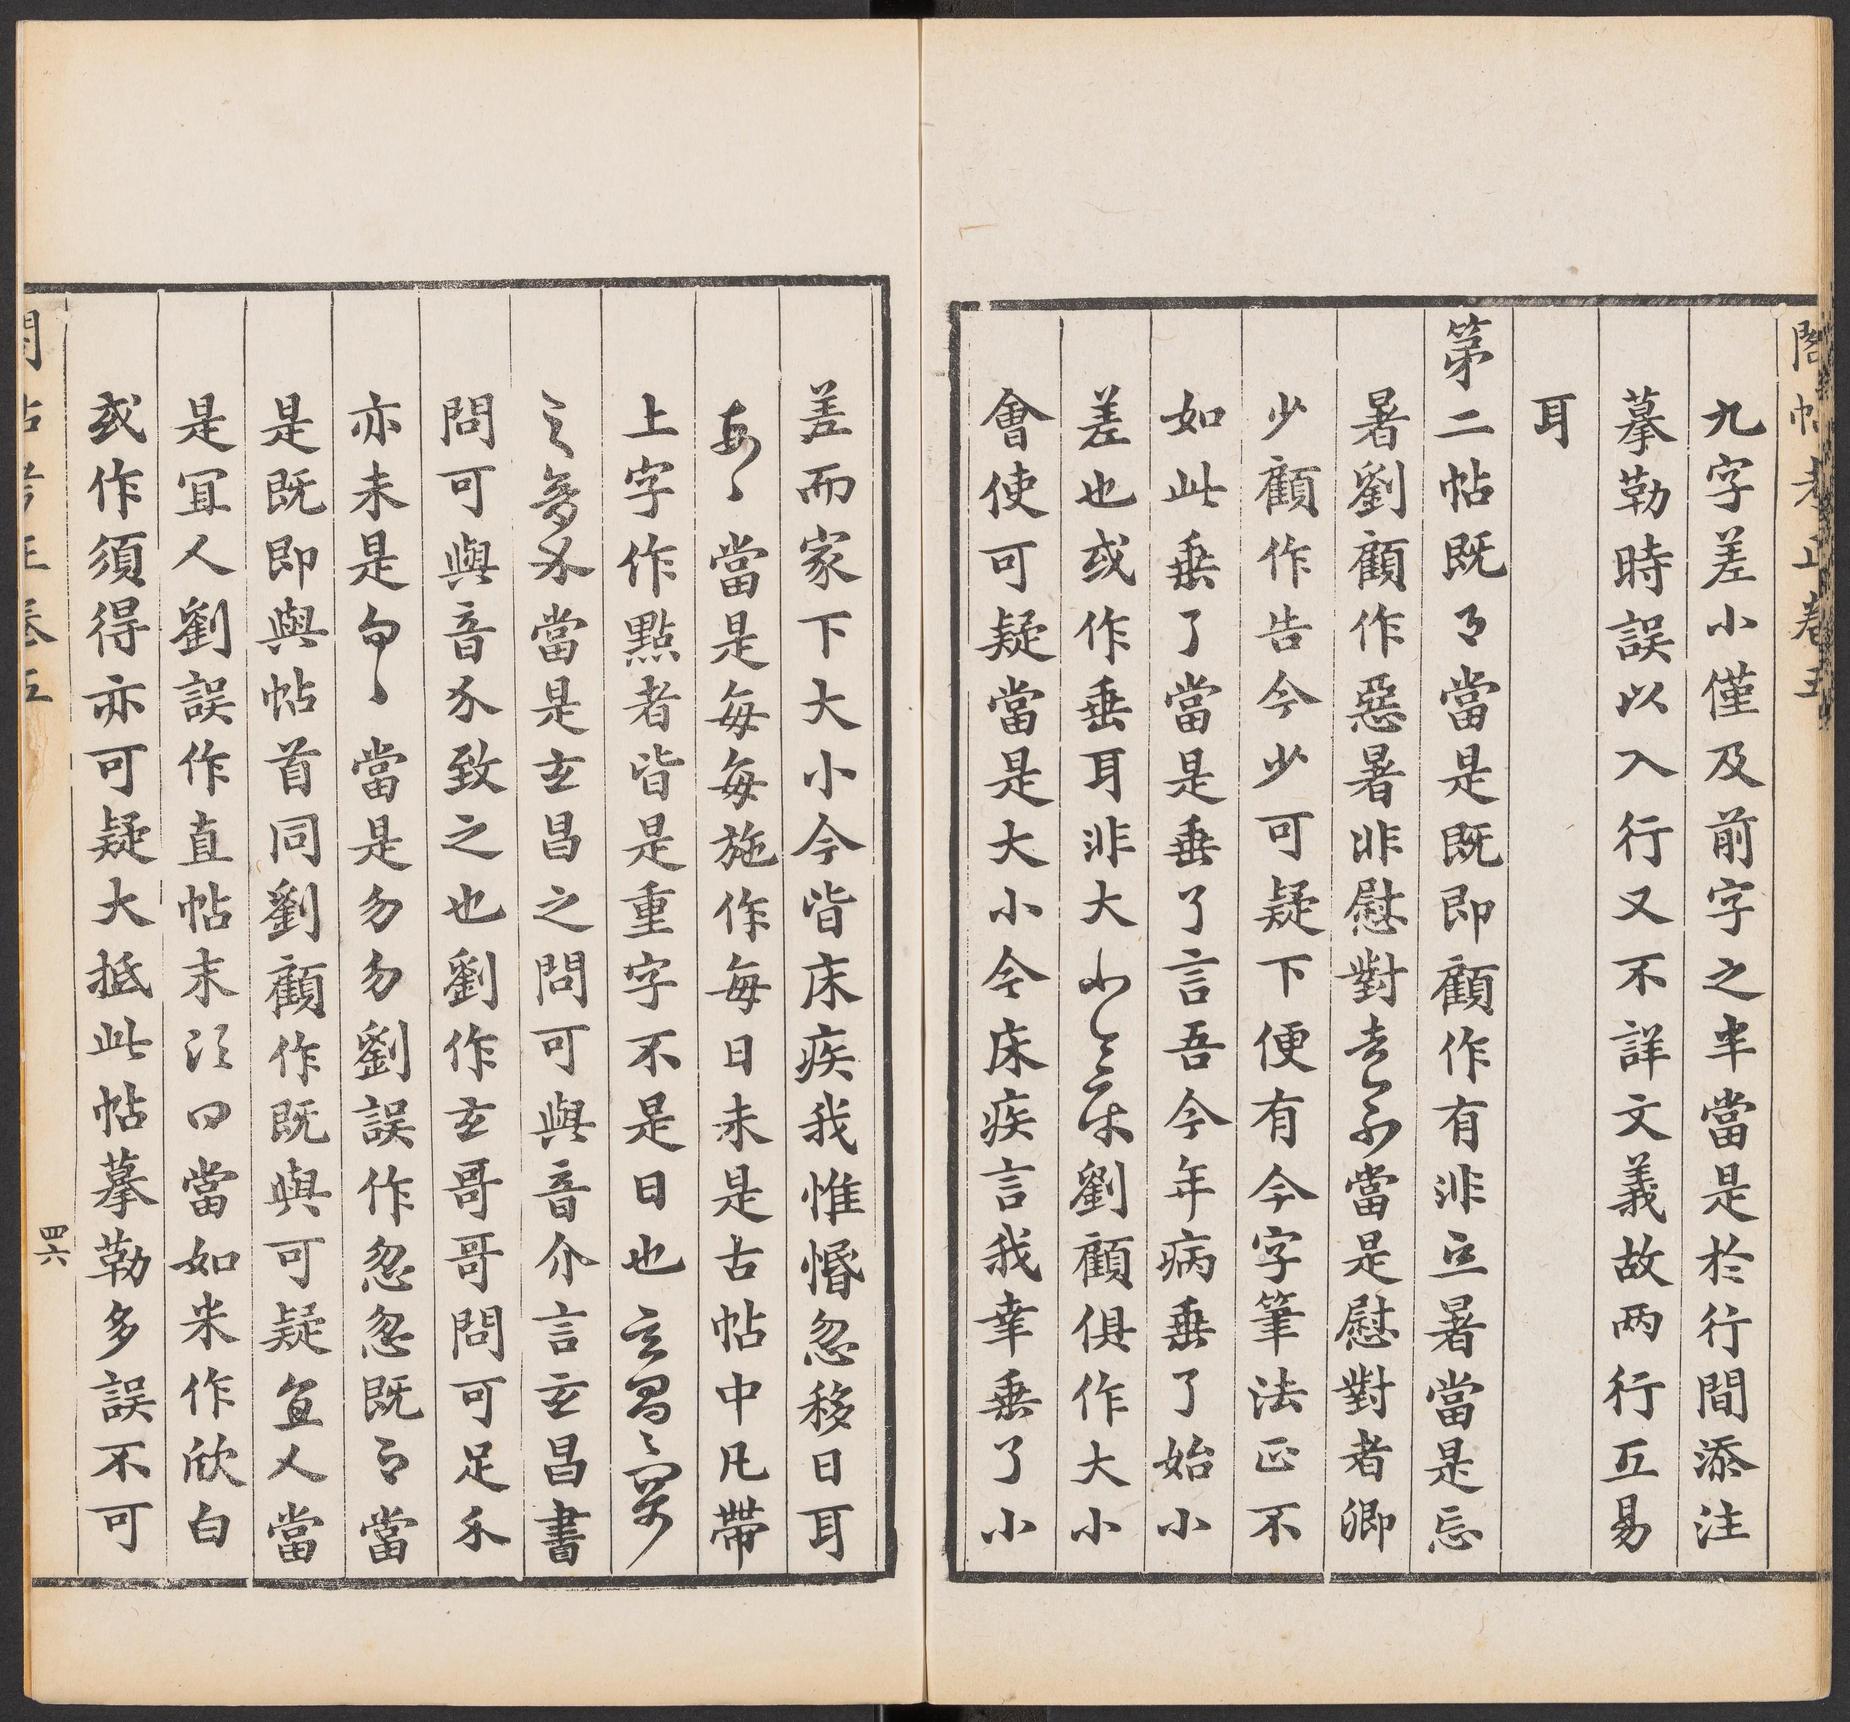 閣帖考正卷五
九字差小僅及前字之半當是於行間添注
摹勒時誤以入行又不詳文義故兩行互易
耳
第二帖既当是既即顧作有非立暑當是忘
暑劉顧作惡暑非慰對當是慰對者卿
少顧作告今少可疑下便有今字筆法正不
如此垂了當是垂了言吾今年病垂了始小
差也或作垂耳非大劉顧俱作大小
會使可疑當是大小今床疾言我幸垂了小
差而家下大小今皆床疾我惟惛忽移日耳
當是每每施作每日未是古帖中凡帶
上字作點者皆是重字不是日也
當是玄昌之問可與音介言玄昌書
問可與音介致之也劉作玄哥哥問可足
亦未是當是勿勿劉誤作忽忽既當
是既即與帖首同劉顧作既與可疑宜人當
是宜人劉誤作直帖末當如米作欣白
或作須得亦可疑大抵此帖摹勒多誤不可
四六